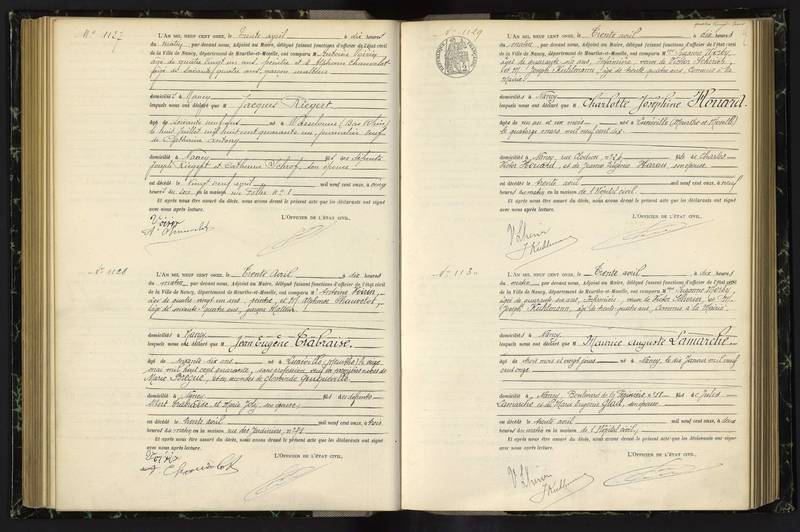 No 1127
L'AN MIL NEUF CENT ONZE, le Trente avril à dix heures
du matin, par devant nous, Adjoint au Maire, délégué faisant fonctions d'officier de l'état civil
de la Ville de Nancy, département de Meurthe-et-Moselle, ont comparu M. Antoine Voirin
âgé de quatre vingt un ans, peintre et M. Alphonse Chauvelot
âgé de soixante quatre ans, garçon
domiciliés à Nancy
lesquels nous ont déclaré que M Jacques Riegert
âgé de soixante neuf ans né à Wasselonne (Bas Rhin)
le huit juillet mil huit cent quarante un, journalier veuf
de Catherine Antony
domicilié à Nancy fils des défunts
Joseph Riegert et Catherine Schref, son épouse
est décédé le vingt neuf avril mil neuf cent onze, à cinq
heures du soir en la maison
Et après nous être assuré du décès, nous avons dressé le présent acte que les déclarants ont signé
avec nous après lecture.
L'OFFICIER DE L'ÉTAT CIVIL.
Voirin
A. Chauvelot
No 1128
L'AN MIL NEUF CENT ONZE, le Trente avril à dix heures
du matin, par devant nous, Adjoint au Maire, délégué faisant fonctions d'officier de l'état civil
de la Ville de Nancy, département de Meurthe-et-Moselle, ont comparu M. Antoine Voirin,
âgé de quatre vingt un ans, peintre, et M. Alphonse Chauvelot,
âgé de soixante quatre ans, garçon
domiciliés à Nancy
lesquels nous ont déclaré que M Jean Eugène Trabraise.
âgé de soixante dix ans né à Lunéville (Meurthe) le onze
mai mil huit cent quarante, sans profession, veuf en premières noces de
Marie et en secondes de
domicilié à Nancy fils des défunts
Trabraise, et Marie Joly, son épouse,
est décédé le trente avril mil neuf cent onze, à trois
heures du matin en la maison rue des Jardiniers, no 71
Et après nous être assuré du décès, nous avons dressé le présent acte que les déclarants ont signé
avec nous après lecture.
L'OFFICIER DE L'ÉTAT CIVIL.
Voirin
Chauvelot
No 1129
L'AN MIL NEUF CENT ONZE, le Trente avril à dix heures
du matin, par devant nous, Adjoint au Maire, délégué faisant fonctions d'officier de l'état civil
de la Ville de Nancy, département de Meurthe-et-Moselle, ont comparu Mme Suzanne
âgée de quarante six ans, infirmière, veuve de Victor
et M. Joseph Kuhlmann, âgé de trente quatre ans, commis à la
Mairie
domiciliés à Nancy
lesquels nous ont déclaré que M Charlotte Joséphine Houard.
âgée de un an et un mois née à Lunéville (Meurthe et Moselle)
le quatorze mars mil neuf cent dix
domiciliée à Nancy, rue Clodion fille de Charles
Victor Houard, et de Jeanne Eugénie son épouse
est décédée le trente avril mil neuf cent onze, à neuf
heures du matin en la maison de l'Hôpital civil
Et après nous être assuré du décès, nous avons dressé le présent acte que les déclarants ont signé
avec nous après lecture.
L'OFFICIER DE L'ÉTAT CIVIL.
J. Kuhlmann
No 1130
L'AN MIL NEUF CENT ONZE, le Trente avril à dix heures
du matin, par devant nous, Adjoint au Maire, délégué faisant fonctions d'officier de l'état civil
de la Ville de Nancy, département de Meurthe-et-Moselle, ont comparu Mme Suzanne
âgée de quarante six ans, infirmière, veuve de Victor et M.
Joseph Kuhlmann, âgé de trente quatre ans, commis à la Mairie
domiciliés à Nancy
lesquels nous ont déclaré que M Maurice Auguste Lamarche.
âgé de trois mois et vingt jours né à Nancy, le dix janvier mil neuf
cent onze
domicilié à Nancy, Boulevard de la Pépinière fils de Jules
Lamarche et de Marie Eugénie son épouse
est décédé le trente avril mil neuf cent onze, à deux
heures du matin en la maison de l'Hôpital civil,
Et après nous être assuré du décès, nous avons dressé le présent acte que les déclarants ont signé
avec nous après lecture.
L'OFFICIER DE L'ÉTAT CIVIL.
J. Kuhlmann